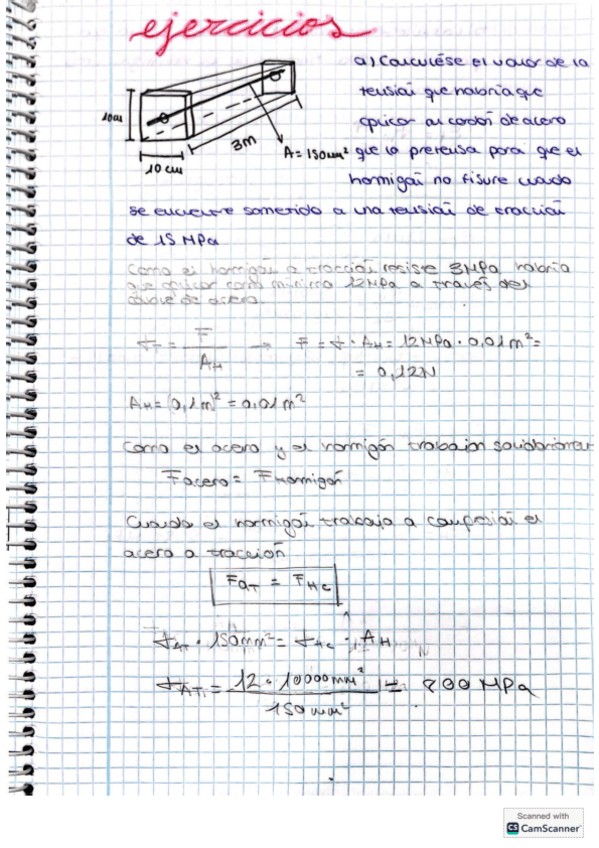 ejercicios
a) Calculése el valor de la
tensión que habría que
aplicar al cordón de acero
A = 150mm² que la pretensa para que el
hormigón no fisure cuando
10cm
3m
10 cm
se encuentre sometido a una tensión de tracción
de 15 MPa
Como el hormigón a tracción resiste 3MPa habría
que aplicar como mínimo 12MPa a través del
de acero.
σT = F / AH → F = σ · AH = 12MPa · 0,01m² =
= 0,12N
AH = (0,1m)² = 0,01m²
Como el acero y el hormigón trabajan
Facero = Fhormigón
Cuando el hormigón trabaja a compresión el
acero a tracción
FaT = FHc
σAT · 150mm² = σHc · AH
σAT = 12 · 10000mm² / 150mm² = 800 MPa
Scanned with
CS CamScanner